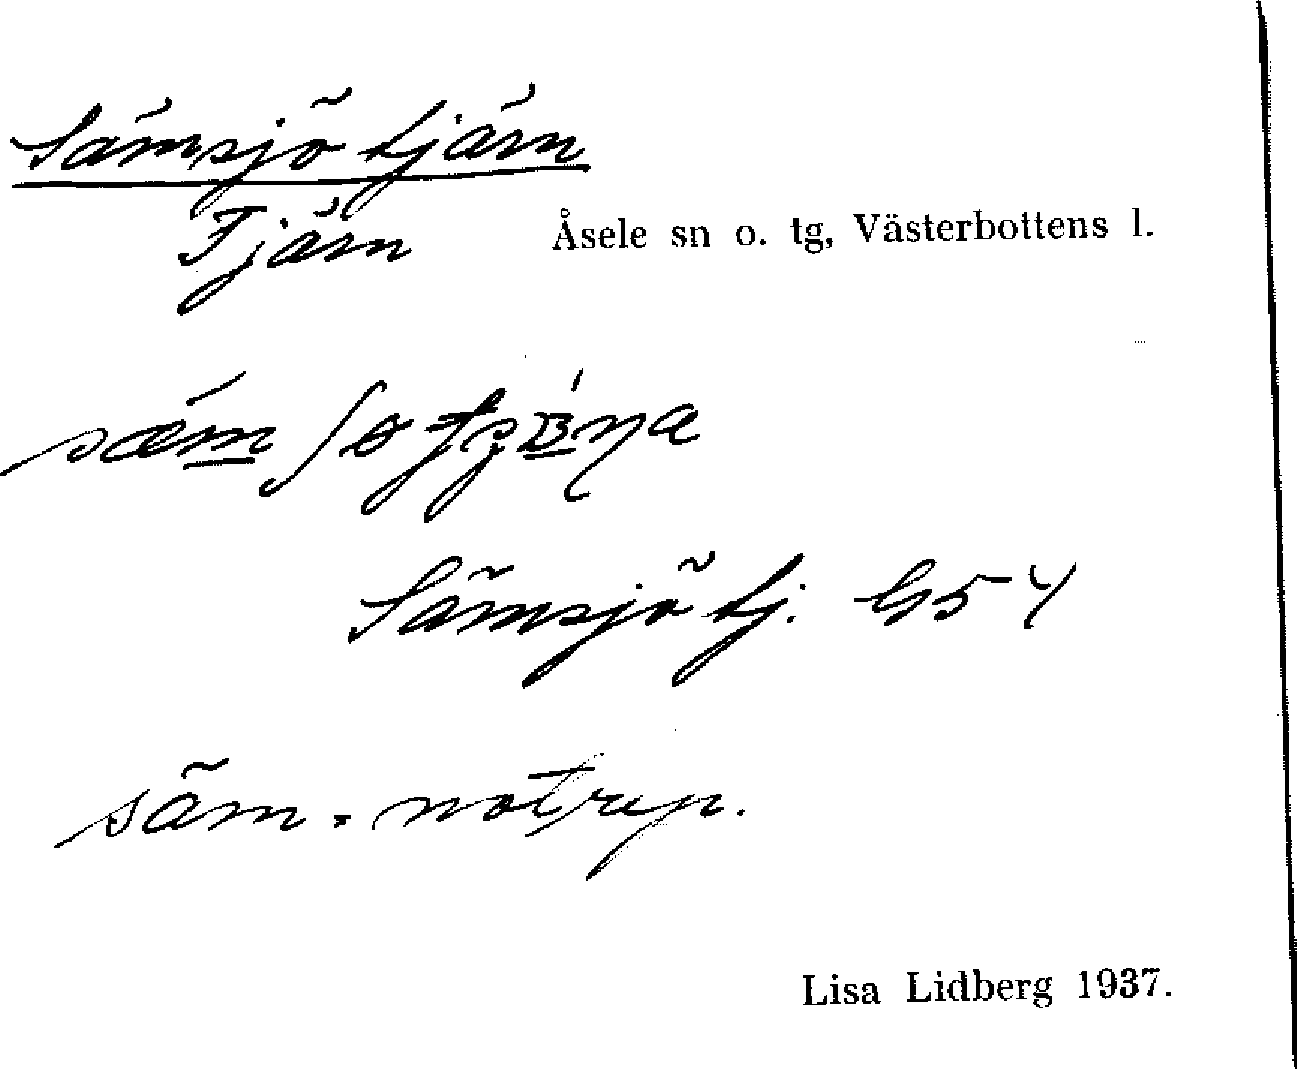 Sämsjötjärn
Tjärn
Åsele sn o. tg, Västerbottens l.
Sämsjötj. G5 Y
säm = notrep.
Lisa Lidberg 1937.